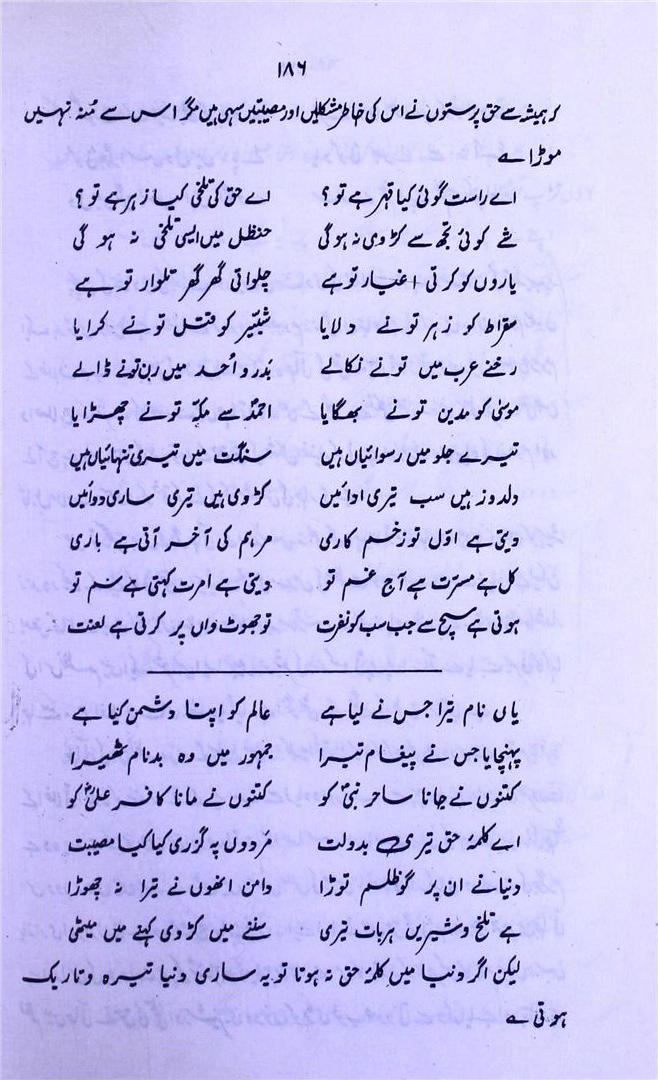 ۱۸۶
کہ ہمیشہ سے حق پرستوں نے اس کی خاطر مشکلیں اور مصیبتیں سہی ہیں مگر اس سے مُنہ نہیں
موڑا ے
اے راست گوئی کیا قہر ہے تو ؟ اے حق کی تلخی کیا زہر ہے تو ؟
شے کوئی تجھ سے کڑوی نہ ہوگی حنظل میں ایسی تلخی نہ ہو گی
یاروں کو کرتی اغیار تو ہے چلواتی گھر گھر تلوار تو ہے
سقراط کو زہر تو نے دلایا شبّیر کو قتل تو نے کرایا
رخنے عرب میں تو نے نکالے بدر و اُحد میں رن تو نے ڈالے
موسیٰ کو مدین تو نے بھگایا احمدؐ سے مکّہ تو نے چھڑایا
تیرے جلو میں رسوائیاں ہیں سنگت میں تیری تنہائیاں ہیں
دلدوز ہیں سب تیری ادائیں کڑوی ہیں تیری ساری دوائیں
دیتی ہے اوّل تو زخم کاری مرہم کی آخر آتی ہے باری
کل ہے مسرّت ہے آج غم تو دیتی ہے امرت کہتی ہے سم تو
ہوتی ہے سچ سے جب سب کو نفرت تو جھوٹ واں پر کرتی ہے لعنت
یاں نام تیرا جس نے لیا ہے عالم کو اپنا دشمن کیا ہے
پہنچایا جس نے پیغام تیرا جمہور میں وہ بدنام ٹھیرا
کتنوں نے جانا ساحر نبیؐ کو کتنوں نے مانا کافر علیؓ کو
اے کلمۂ حق تیری بدولت مَردوں پہ گزری کیا کیا مصیبت
دنیا نے ان پر گو ظلم توڑا دامن انھوں نے تیرا نہ چھوڑا
ہے تلخ و شیریں ہر بات تیری سننے میں کڑوی کہنے میں میٹھی
لیکن اگر دنیا میں کلمۂ حق نہ ہوتا تو یہ ساری دنیا تیرہ و تاریک
ہوتی ے